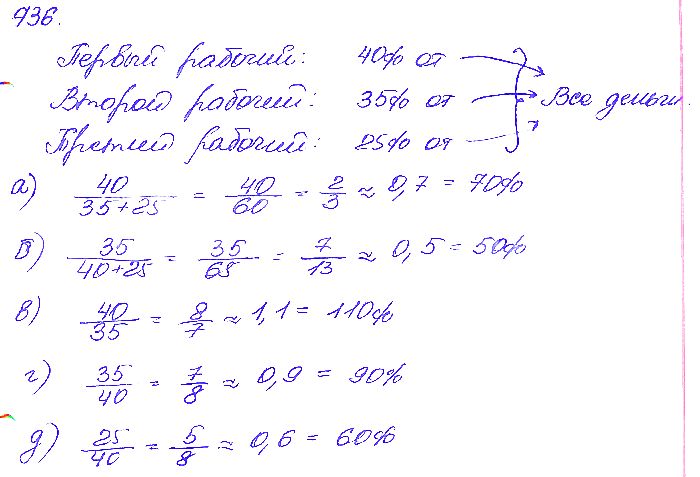 936.
Первый рабочий: 40% от
Второй рабочий: 35% от Все деньги.
Третий рабочий: 25% от
а) 40/(35+25) = 40/60 = 2/3 ≈ 0,7 = 70%
б) 35/(40+25) = 35/65 = 7/13 ≈ 0,5 = 50%
в) 40/35 = 8/7 ≈ 1,1 = 110%
г) 35/40 = 7/8 ≈ 0,9 = 90%
д) 25/40 = 5/8 ≈ 0,6 = 60%